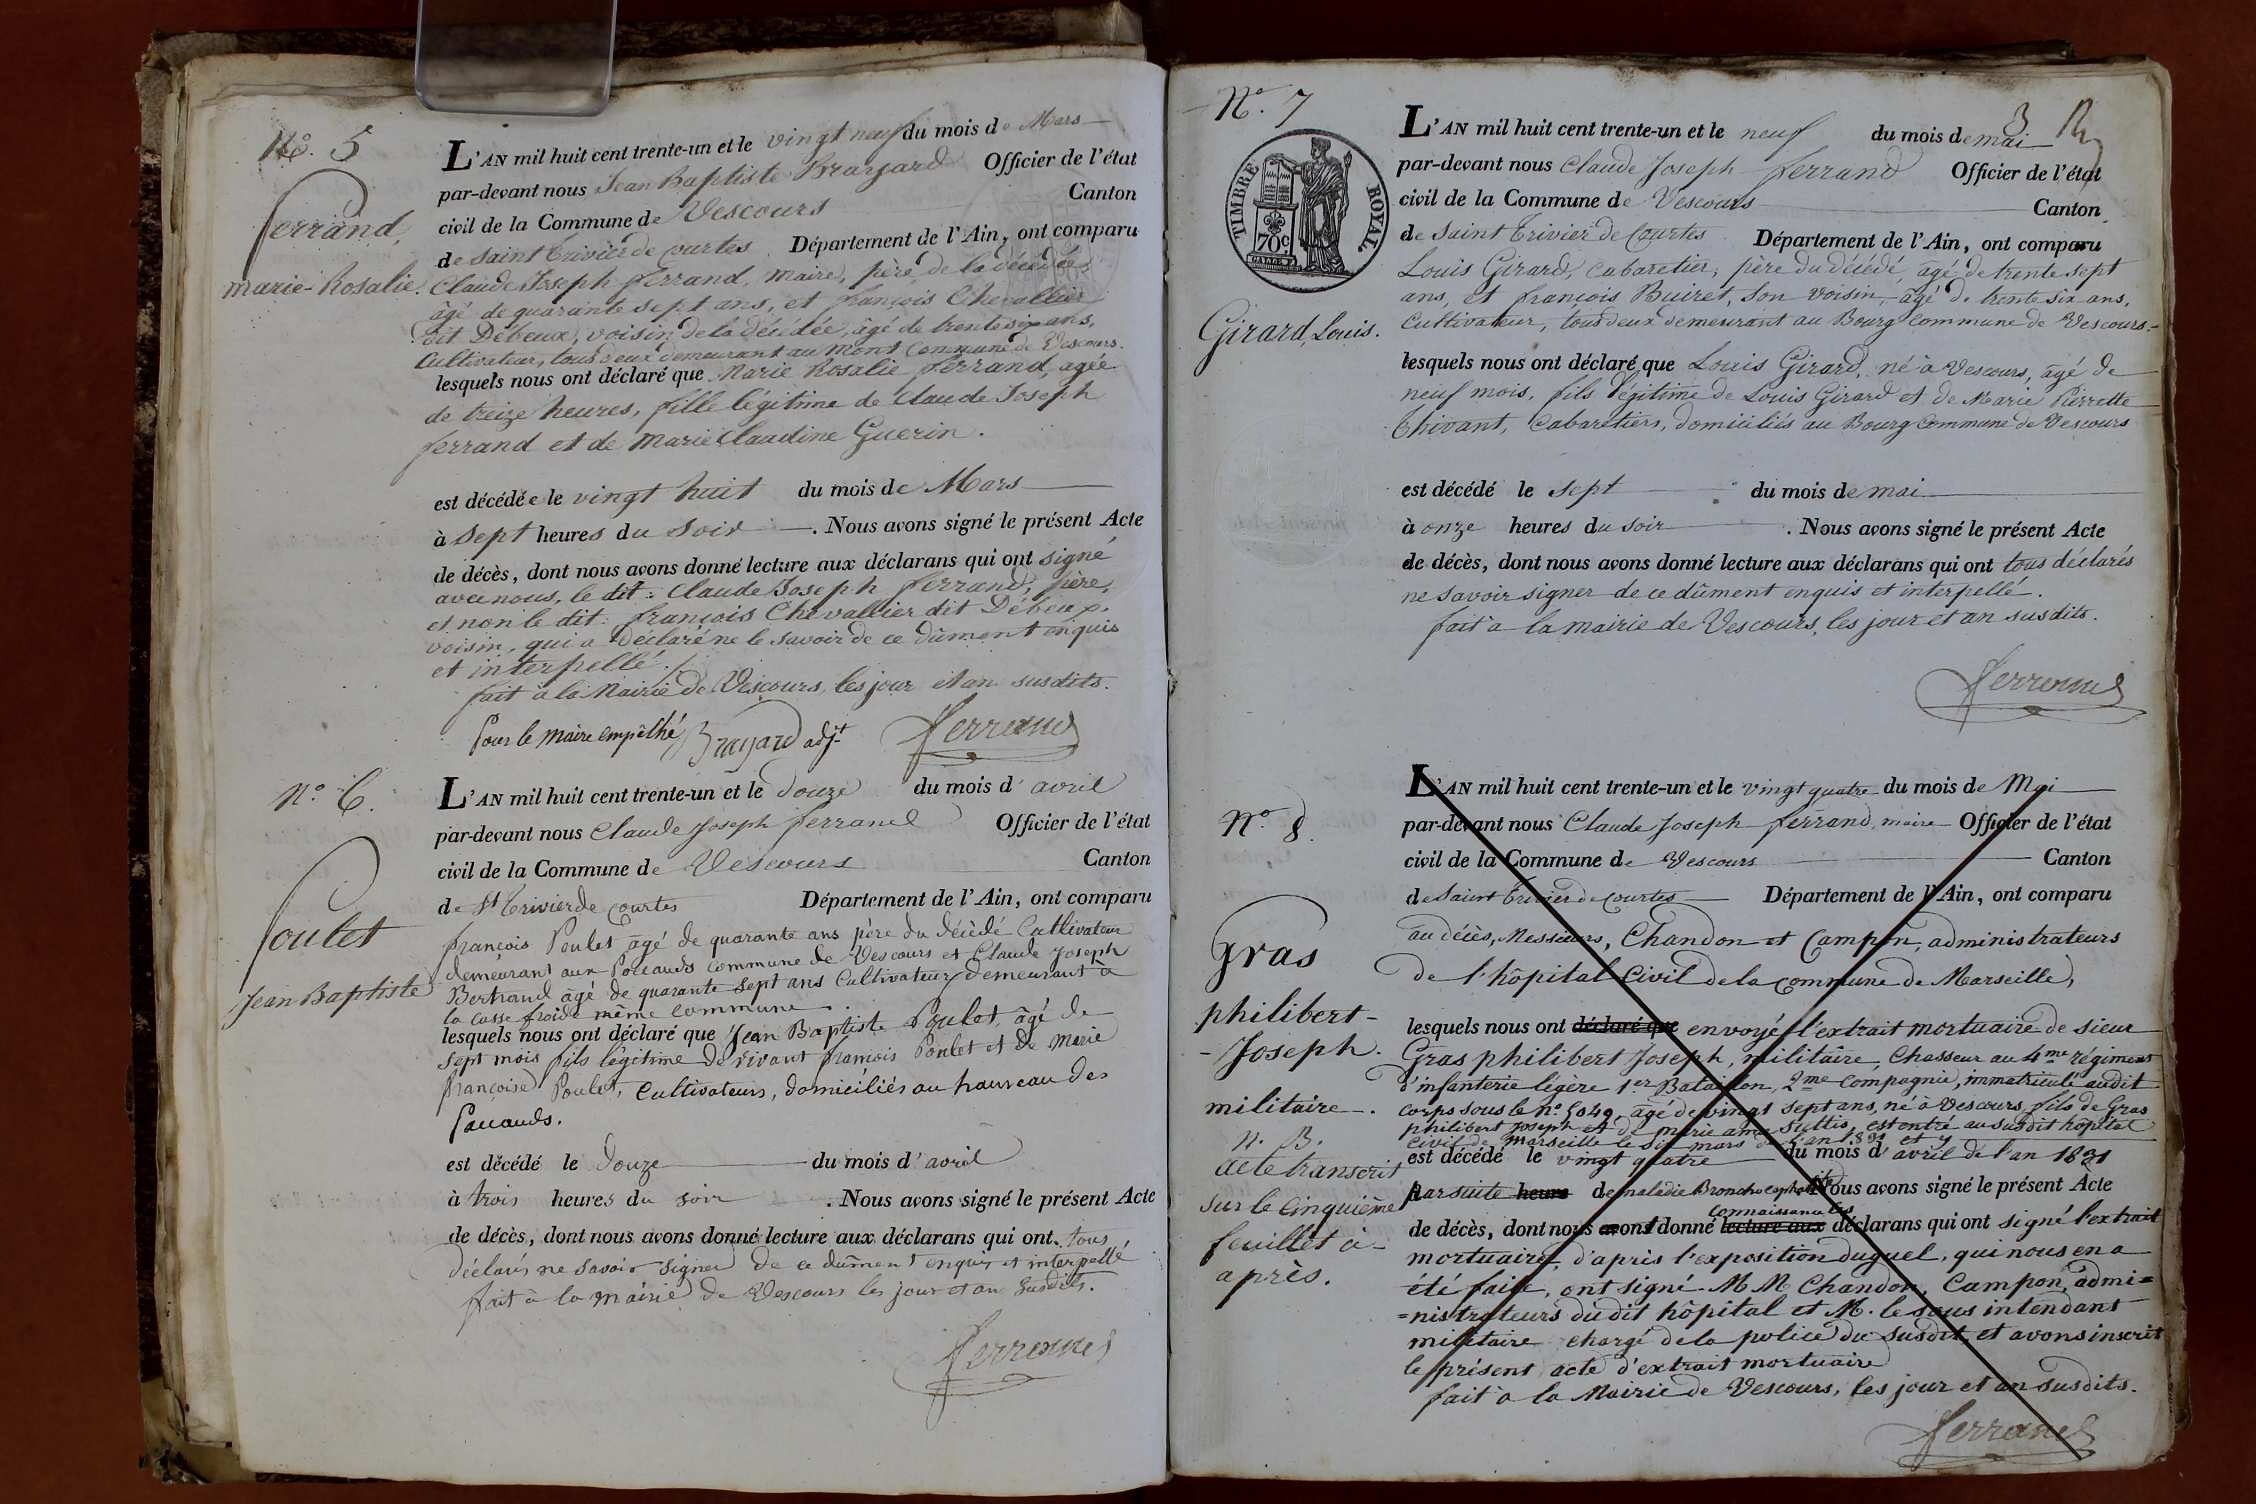 N.o 5
Ferrand,
marie-Rosalie.
L'AN mil huit cent trente-un et le vingt neuf du mois de Mars
par-devant nous Jean Baptiste Brayard Officier de l'état
civil de la Commune de Vescours Canton
de Saint Trivier de Courtes Département de l'Ain, ont comparu
Claude Joseph Ferrand, maire, père de la décédée
âgé de quarante sept ans, et françois Chevallier
dit Débeux, voisin de la décédée, âgé de trente six ans,
Cultivateur, tous deux demeurant au mont Commune de Vescours.
lesquels nous ont déclaré que Marie Rosalie Ferrand, agée
de treize heures, fille légitime de Claude Joseph
ferrand et de Marie Claudine Guerin.
est décédée le vingt huit du mois de Mars
à sept heures du soir. Nous avons signé le présent Acte
de décès, dont nous avons donné lecture aux déclarans qui ont signé
avec nous, le dit: Claude Joseph Ferrand, père,
et non le dit: françois Chevallier dit Débeux
voisin, qui a déclaré ne le savoir de ce dûment enquis
et interpellé./.
fait à la Mairie de Vescours, les jour et an susdits.
Pour le maire empêché Brayard adjt Ferrand
N.o 6.
Poulet
Jean Baptiste
L'AN mil huit cent trente-un et le douze du mois d'avril
par-devant nous Claude Joseph ferrand Officier de l'état
civil de la Commune de Vescours Canton
de St Trivier de Courtes Département de l'Ain, ont comparu
françois Poulet âgé de quarante ans père du décédé Cultivateur
demeurant aux Poccauds commune de Vescours et Claude Joseph
Bertrand âgé de quarante sept ans Cultivateur demeurant à
la casse froide même commune
lesquels nous ont déclaré que Jean Baptiste Poulet, âgé de
sept mois fils légitime de vivant françois Poulet et de Marie
françoise Poulet, Cultivateurs, domiciliés au hameau des
Paccauds.
est décédé le douze du mois d'avril
à trois heures du soir. Nous avons signé le présent Acte
de décès, dont nous avons donné lecture aux déclarans qui ont tous
déclarés ne savoir signer de ce dûment enquis et interpellé
fait à la mairie de Vescours les jour et an susdits.
Ferrand
N.o 7
3
TIMBRE ROYAL
70c
Girard, Louis.
L'AN mil huit cent trente-un et le neuf du mois de mai
par-devant nous Claude Joseph ferrand Officier de l'état
civil de la Commune de Vescours Canton
de Saint Trivier de Courtes Département de l'Ain, ont comparu
Louis Girard, Cabaretier, père du décédé âgé de trente sept
ans, et françois Buiret, son voisin, âgé de trente six ans,
Cultivateur, tous deux demeurant au Bourg commune de Vescours.
lesquels nous ont déclaré que Louis Girard, né à Vescours, âgé de
neuf mois, fils légitime de Louis Girard et de Marie Pierrette
Thivant, Cabaretiers, domiciliés au Bourg commune de Vescours
est décédé le sept du mois de mai
à onze heures du soir. Nous avons signé le présent Acte
de décès, dont nous avons donné lecture aux déclarans qui ont tous déclarés
ne savoir signer de ce dûment enquis et interpellé.
fait à la mairie de Vescours, les jour et an susdits.
Ferrand
N.o 8.
Gras
philibert-
-Joseph.
militaire.
N. B.
acte transcrit
sur le cinquième
feuillet ci-
après.
L'AN mil huit cent trente-un et le vingt quatre du mois de Mai
par-devant nous Claude Joseph ferrand, maire Officier de l'état
civil de la Commune de Vescours Canton
de Saint Trivier de Courtes Département de l'Ain, ont comparu
au décès, Messieurs, Chandon et Campon, administrateurs
de l'hôpital Civil de la commune de Marseille,
lesquels nous ont déclaré que envoyé l'extrait mortuaire de sieur
Gras philibert Joseph, militaire, Chasseur au 4me régiment
d'infanterie légère 1er Bataillon, 2me Compagnie, immatriculé audit
corps sous le n.o 5049, âgé de vingt sept ans, né à Vescours, fils de Gras
philibert Joseph et de marie aimé Suttis, est entré au susdit hôpital
civil de Marseille le dix mars de l'an 1831 et y
est décédé le vingt quatre du mois d'avril de l'an 1831
par suite heure de maladie Nous avons signé le présent Acte
connaissance des
de décès, dont nous avons donné lecture aux déclarans qui ont signé l'extrait
mortuaire, d'après l'exposition duquel, qui nous en a
été faite, ont signé M M Chandon, Campon, admi=
=nistrateurs du dit hôpital et M. le sous intendant
militaire chargé de la police du susdit, et avons inscrit
le présent acte d'extrait mortuaire
fait à la Mairie de Vescours, les jour et an susdits.
Ferrand